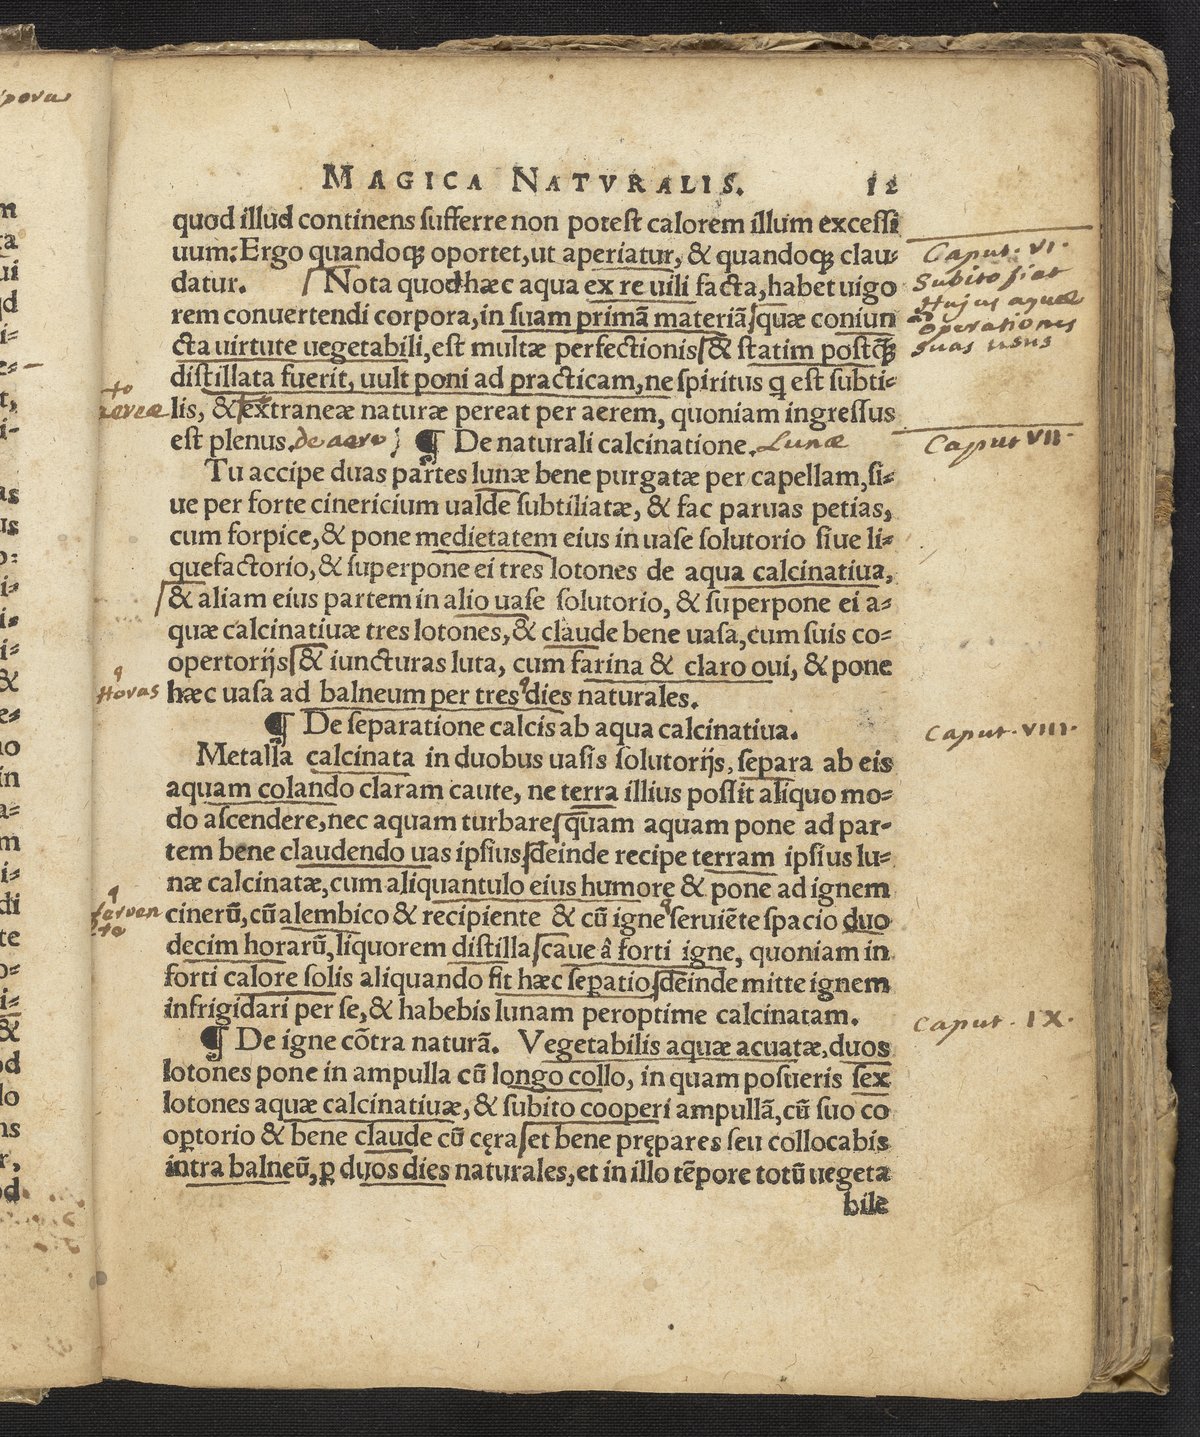 MAGICA NATVRALIS. 12
quod illud continens sufferre non potest calorem illum excessi
uum: Ergo quandoq; oportet, ut aperiatur, & quandoq; clau=
datur. Nota quod hæc aqua ex re uili facta, habet uigo
rem conuertendi corpora, in suam primā materiā quæ coniun
cta uirtute uegetabili, est multæ perfectionis & statim postq̄;
distillata fuerit, uult poni ad practicam, ne spiritus q̄ est subti=
lis, & extraneæ naturæ pereat per aerem, quoniam ingressus
est plenus. de aere ¶ De naturali calcinatione. Lunæ
Tu accipe duas partes lunæ bene purgatæ per capellam, si=
ue per forte cinericium ualde subtiliatæ, & fac paruas petias,
cum forpice, & pone medietatem eius in uase solutorio siue li=
quefactorio, & superpone ei tres lotones de aqua calcinatiua,
& aliam eius partem in alio uase solutorio, & superpone ei a=
quæ calcinatiuæ tres lotones, & claude bene uasa, cum suis co=
opertorijs & iuncturas luta, cum farina & claro oui, & pone
hæc uasa ad balneum per tres dies naturales.
¶ De separatione calcis ab aqua calcinatiua.
Metalla calcinata in duobus uasis solutorijs, separa ab eis
aquam colando claram caute, ne terra illius possit aliquo mo=
do ascendere, nec aquam turbare quam aquam pone ad par=
tem bene claudendo uas ipsius deinde recipe terram ipsius lu=
næ calcinatæ, cum aliquantulo eius humore & pone ad ignem
cinerū, cū alembico & recipiente & cū igne seruiēte spacio duo
decim horarū, liquorem distilla caue â forti igne, quoniam in
forti calore solis aliquando fit hæc sep̱atio deinde mitte ignem
infrigidari per se, & habebis lunam peroptime calcinatam.
¶ De igne cōtra naturā. Vegetabilis aquæ acuatæ, duos
lotones pone in ampulla cū longo collo, in quam posueris sex
lotones aquæ calcinatiuæ, & subito cooperi ampullā, cū suo co
op̱torio & bene claude cū cęra et bene prępares seu collocabis
intra balneū, p̱ duos dies naturales, et in illo tēpore totū uegeta
bile
Caput. VI.
Subito fiat
Hujus aquæ
ad operationes
suas usus
Caput VII.
Caput. VIII.
Caput. IX.
to
aereæ
Horas
ferven
to